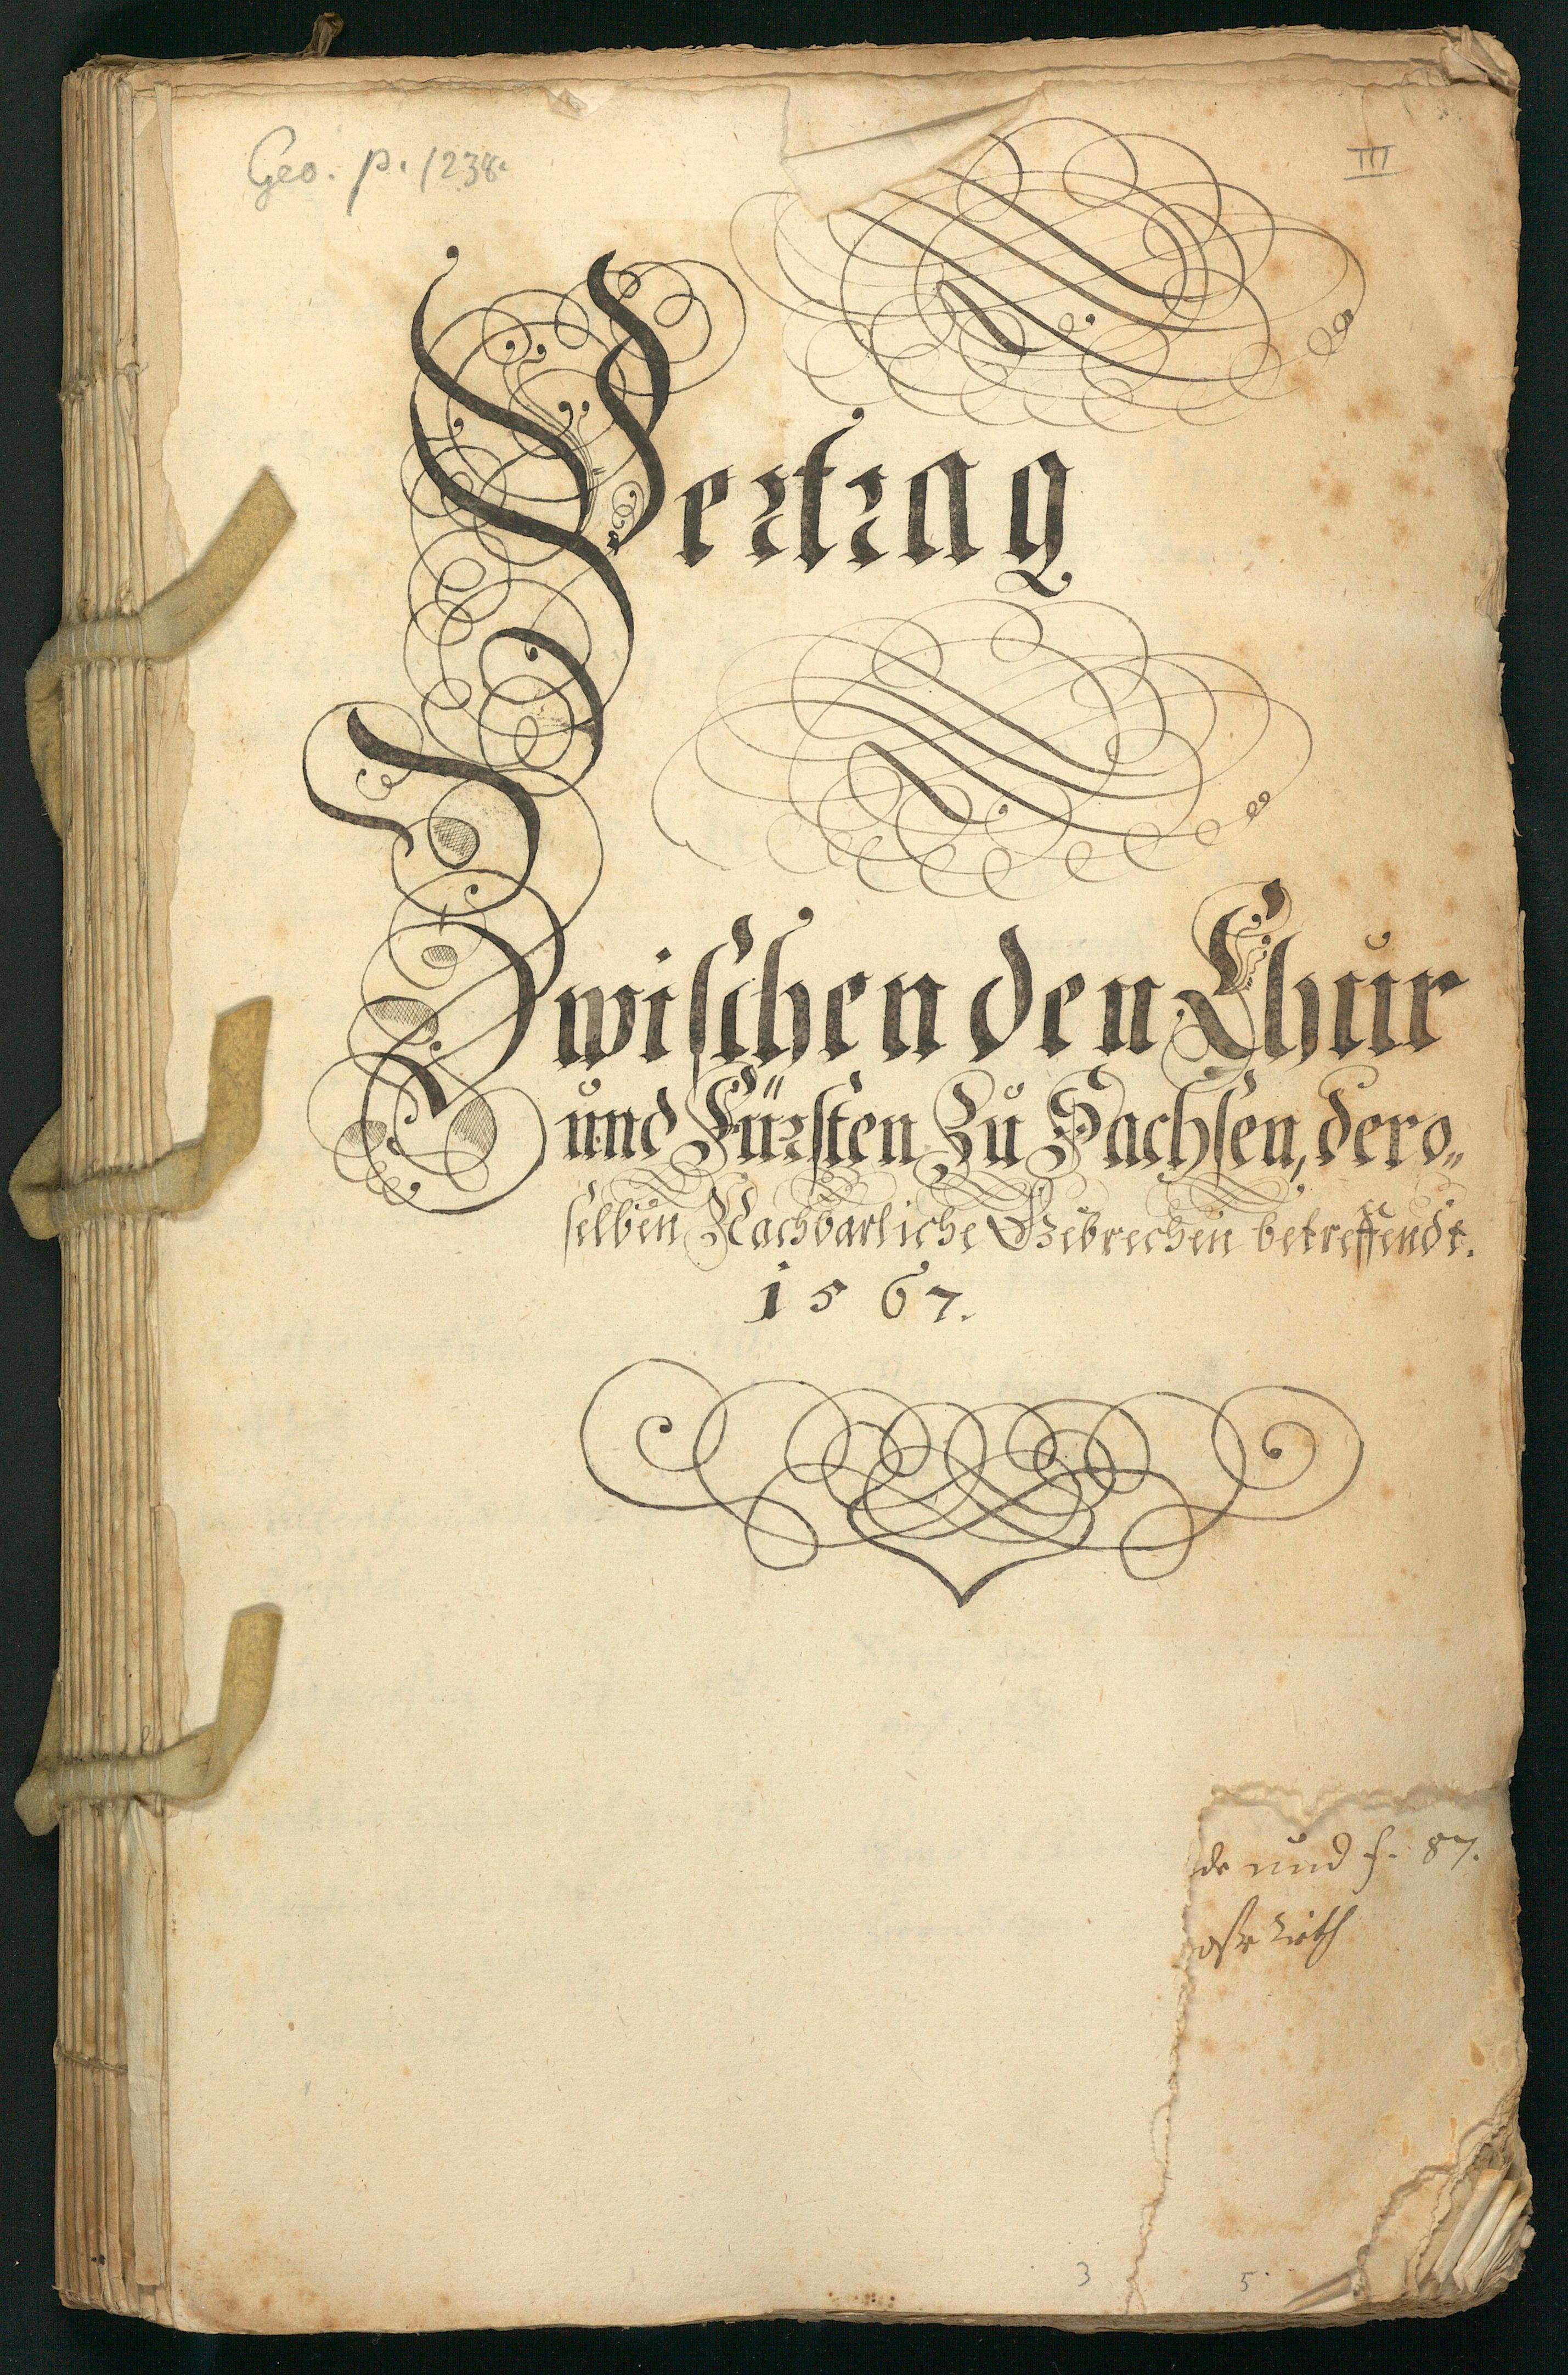 Geo. p. 1238.
III
Vertrag
Zwischen den Chur
und Fürsten Zu Sachsen, dero„
selben Nachbarliche Gebrechen betreffendt.
1567.
de und f. 87.
3 5